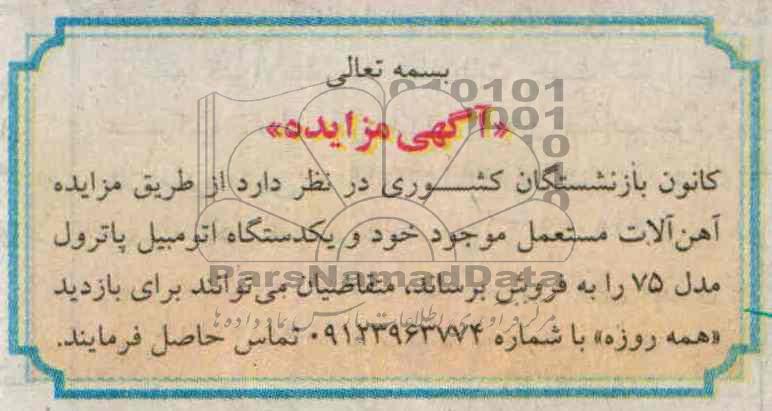 بسمه تعالی
«آگهی مزایده»
کانون بازنشستگان کشوری در نظر دارد از طریق مزایده
آهن‌آلات مستعمل موجود خود و یکدستگاه اتومبیل پاترول
مدل ۷۵ را به فروش برساند، متقاضیان می‌توانند برای بازدید
«همه روزه» با شماره ۰۹۱۲۳۹۶۳۷۷۴ تماس حاصل فرمایند.
010101
001
10
ParsNamadData
مرکز فرآوری اطلاعات پارس نماد داده ها